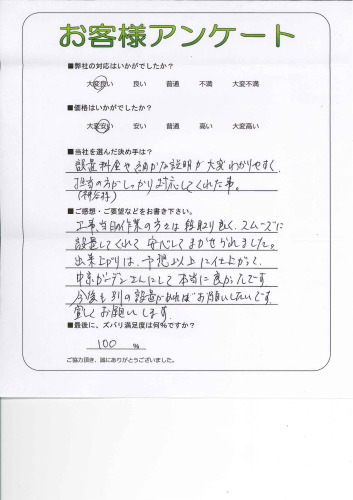 お客様アンケート
■弊社の対応はいかがでしたか？
大変良い 良い 普通 不満 大変不満
■価格はいかがでしたか？
大変安い 安い 普通 高い 大変高い
■当社を選んだ決め手は？
設置料金や細かな説明が大変わかりやすく
担当の方がしっかり対応してくれた事。
■ご感想・ご要望などをお書き下さい。
工事当日の作業の方々は段取り良く、スムーズに
設置してくれて安心してまかせられました。
出来上がりは、予想以上に仕上がって
中京ガーデンさんにして本当に良かったです
今後も別の設置があればお願いしたいです
宜しくお願いします。
■最後に、ズバリ満足度は何%ですか？
100 %
ご協力頂き、誠にありがとうございました。